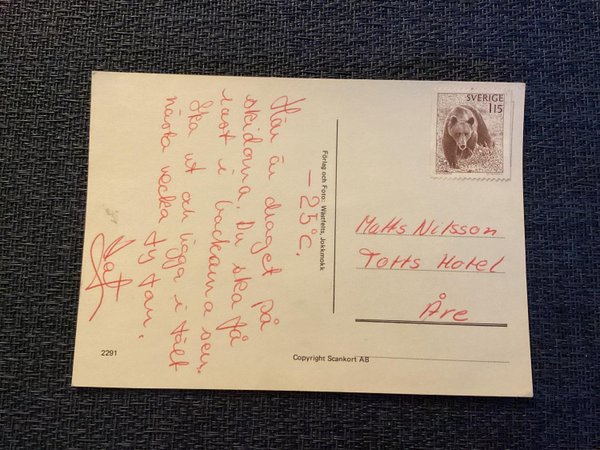 - 25°C.
Här är draget på
skidorna. Du ska få
rast i backarna sen.
Ska ut och ligga i tält
nästa vecka
Förlag och Foto: Wästfelts, Jokkmokk
SVERIGE
115
Matts Nilsson
Totts Hotel
Åre
2291
Copyright Scankort AB